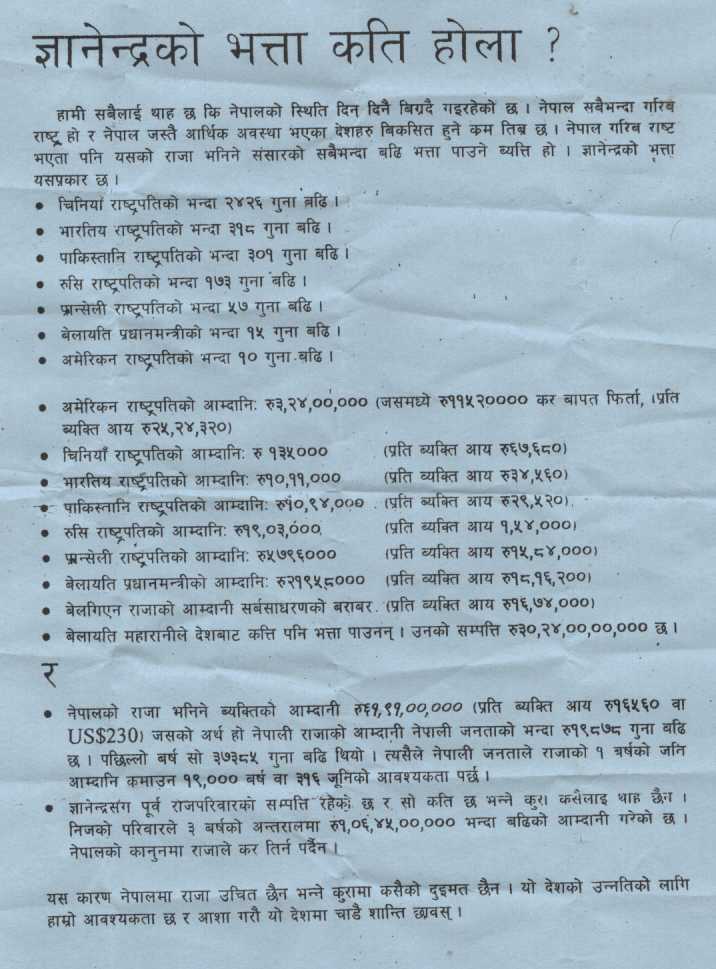 ज्ञानेन्द्रको भत्ता कति होला ?
हामी सबैलाई थाह छ कि नेपालको स्थिति दिन दिनै बिग्रदै गइरहेको छ । नेपाल सबैभन्दा गरिब
राष्ट्र हो र नेपाल जस्तै आर्थिक अवस्था भएका देशहरु बिकसित हुने कम तिब्र छ । नेपाल गरिब राष्ट
भएता पनि यसको राजा भनिने संसारको सबैभन्दा बढि भत्ता पाउने ब्यत्ति हो । ज्ञानेन्द्रको भत्ता
यसप्रकार छ ।
• चिनियाँ राष्ट्रपतिको भन्दा २४२६ गुना बढि ।
• भारतिय राष्ट्रपतिको भन्दा ३१८ गुना बढि ।
• पाकिस्तानि राष्ट्रपतिको भन्दा ३०१ गुना बढि ।
• रुसि राष्ट्रपतिको भन्दा १७३ गुना बढि ।
• फ्रान्सेली राष्ट्रपतिको भन्दा ५७ गुना बढि ।
• बेलायति प्रधानमन्त्रीको भन्दा १५ गुना बढि ।
• अमेरिकन राष्ट्रपतिको भन्दा १० गुना बढि ।
• अमेरिकन राष्ट्रपतिको आम्दानि: रु३,२४,००,००० (जसमध्ये रु११५२०००० कर बापत फिर्ता, (प्रति
ब्यक्ति आय रु२५,२४,३२०)
• चिनियाँ राष्ट्रपतिको आम्दानि: रु १३५००० (प्रति ब्यक्ति आय रु६७,६८०)
• भारतिय राष्ट्रपतिको आम्दानि: रु१०,११,००० (प्रति ब्यक्ति आय रु३४,५६०)
• पाकिस्तानि राष्ट्रपतिको आम्दानि: रु१०,९४,००० (प्रति ब्यक्ति आय रु२९,५२०)
• रुसि राष्ट्रपतिको आम्दानि: रु१९,०३,००० (प्रति ब्यक्ति आय १,५४,०००)
• फ्रान्सेली राष्ट्रपतिको आम्दानि: रु५७९६००० (प्रति ब्यक्ति आय रु१५,८४,०००)
• बेलायति प्रधानमन्त्रीको आम्दानि: रु२१९५८००० (प्रति ब्यक्ति आय रु१८,१६,२००)
• बेलगिएन राजाको आम्दानी सर्बसाधरणको बराबर. (प्रति ब्यक्ति आय रु१६,७४,०००)
• बेलायति महारानीले देशबाट कत्ति पनि भत्ता पाउनन् । उनको सम्पत्ति रु३०,२४,००,००,००० छ ।
र
• नेपालको राजा भनिने ब्यक्तिको आम्दानी रु६१,९१,००,००० (प्रति ब्यक्ति आय रु१६५६० वा
US$230) जसको अर्थ हो नेपाली राजाको आम्दानी नेपाली जनताको भन्दा रु१९८७८ गुना बढि
छ । पछिल्लो बर्ष सो ३७३८५ गुना बढि थियो । त्यसैले नेपाली जनताले राजाको १ बर्षको जनि
आम्दानि कमाउन १९,००० बर्ष वा ३१६ जूनिको आवश्यकता पर्छ ।
• ज्ञानेन्द्रसंग पूर्व राजपरिवारको सम्पत्ति रहेको छ र सो कति छ भन्ने कुरा कसैलाइ थाह छैन ।
निजको परिवारले ३ बर्षको अन्तरालमा रु१,०६,४५,००,००० भन्दा बढिको आम्दानी गरेको छ ।
नेपालको कानुनमा राजाले कर तिर्न पर्दैन ।
यस कारण नेपालमा राजा उचित छैन भन्ने कुरामा कसैको दुइमत छैन । यो देशको उन्नतिको लागि
हाम्रो आवश्यकता छ र आशा गरौ यो देशमा चाडै शान्ति छावस् ।